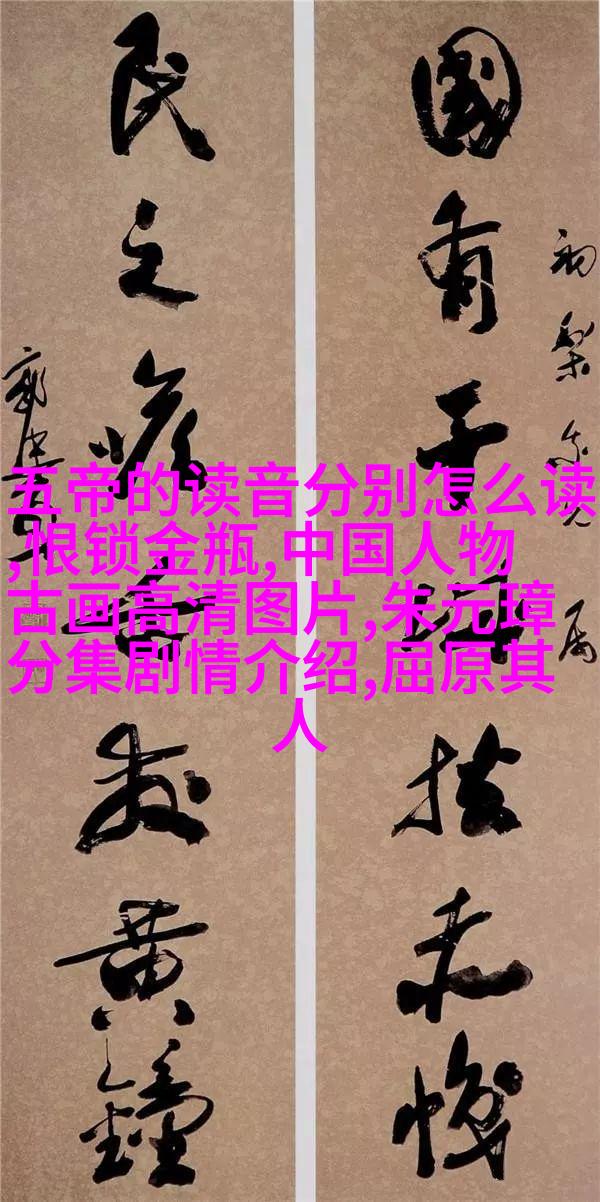 五帝的读音分别怎么读
,恨锁金瓶,中国人物
古画高清图片,朱元璋
分集剧情介绍,屈原其
人
國有干城扶赤幟
民之喉舌發黄鐘